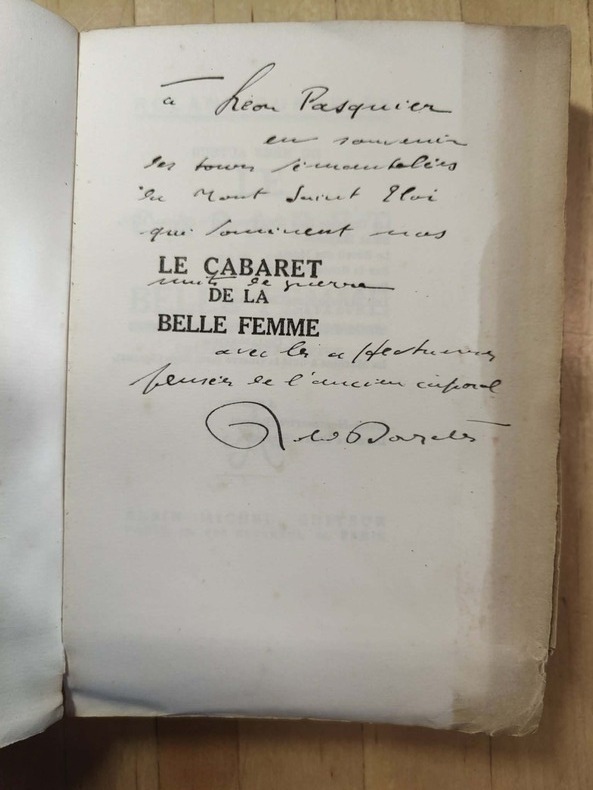 à Léon Pasquier
en souvenir
des tours démantelées
du Mont Saint Eloi
qui dominent nos
LE CABARET
nuits de guerre
DE LA
BELLE FEMME
avec les affectueuses
pensées de l'ancien caporal
ALBIN MICHEL, ÉDITEUR